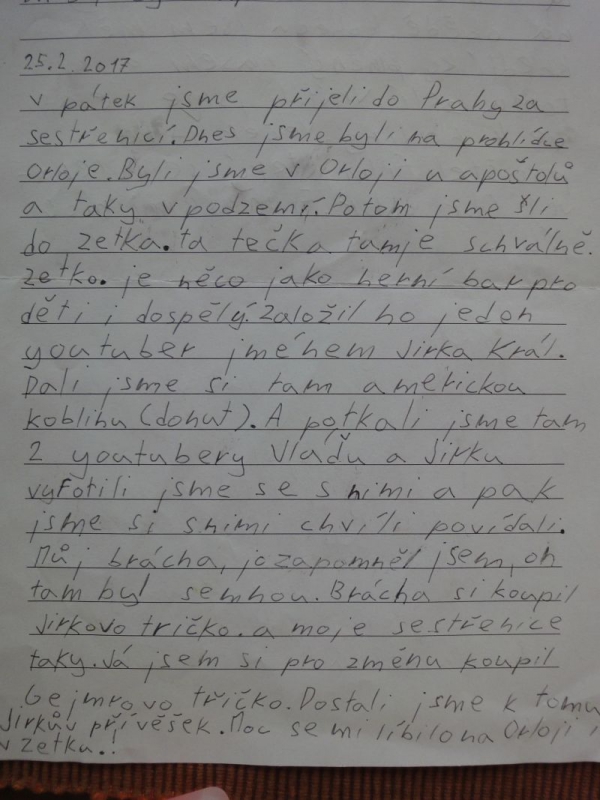 25.2.2017
v pátek jsme přijeli do Prahy za
sestřenicí. Dnes jsme byli na prohlídce
Orloje. Byli jsme v Orloji u apoštolů
a taky v podzemí. Potom jsme šli
do zetka. ta tečka tam je schválně.
zetko. je něco jako herní bar pro
děti i dospělý. Založil ho jeden
youtuber jménem Jirka Král.
Dali jsme si tam americkou
koblihu (donut). A potkali jsme tam
2 youtubery Vláďu a Jirku
vyfotili jsme se s nimi a pak
jsme si snimi chvíli povídali.
Můj brácha, jo zapomněl jsem, on
tam byl semnou. Brácha si koupil
Jirkovo tričko. a moje sestřenice
taky. Já jsem si pro změnu koupil
Gejmrovo tričko. Dostali jsme k tomu
Jirkův přívěšek. Moc se mi líbilo na Orloji i
v zetku.!